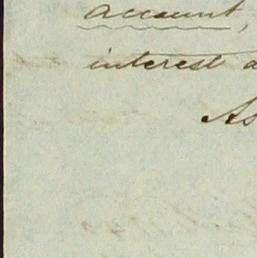 account,
interest a
As